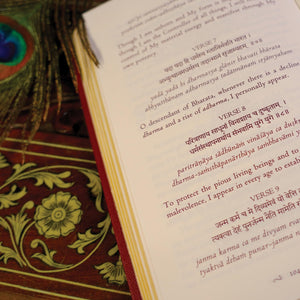 Though I am unborn and My form is
and I am the Controller of all things, I will
of My material energy and manifest through My
VERSE 7
यदा यदा हि धर्मस्य ग्लानिर्भवति भारत ।
अभ्युत्थानमधर्मस्य तदात्मानं सृजाम्यहम् ॥७॥
yadā yadā hi dharmasya glānir bhavati bhārata
abhyutthānam adharmasya tadātmānaṁ sṛjāmyaham
O descendant of Bharata, whenever there is a decline
dharma and a rise of adharma, I personally appear.
VERSE 8
परित्राणाय साधूनां विनाशाय च दुष्कृताम् ।
धर्मसंस्थापनार्थाय संभवामि युगे युगे ॥८॥
paritrāṇāya sādhūnāṁ vināśāya ca
dharma-saṁsthāpanārthāya sambhavāmi
To protect the pious living beings and to
malevolence, I appear in every age to
VERSE 9
जन्म कर्म च मे दिव्यमेवं
त्यक्त्वा देहं पुनर्जन्म नैति मामेति
janma karma ca me divyam
tyaktvā dehaṁ punar-janma